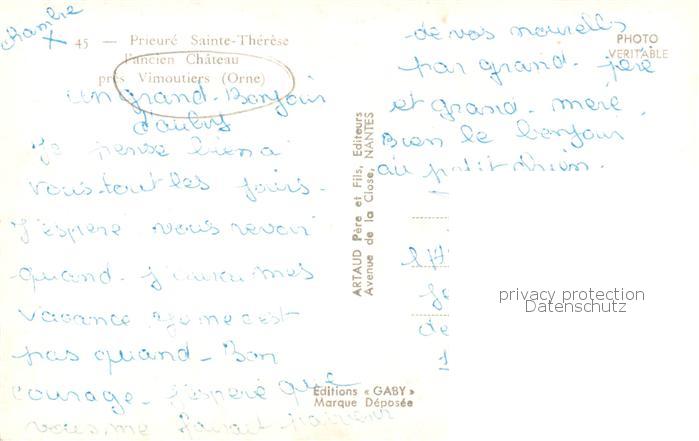 chambre
X
45 — Prieuré Sainte-Thérèse
l'ancien Château
près Vimoutiers (Orne)
un grand - Bonjour
d'auby
je pense bien a
vous tout les jours -
J'espere vous revoir
quand - j'aurai mes
vacance je ne c est
pas quand - Bon
courage - j'espere que
vous me faisait parvenir
de vos nouvelles
par grand - père
et grand - mère
Bien le bonjour
au petit
PHOTO
VERITABLE
ARTAUD Père et Fils, Editeurs
Avenue de la Close, NANTES
de
privacy protection
Datenschutz
Editions « GABY »
Marque Déposée